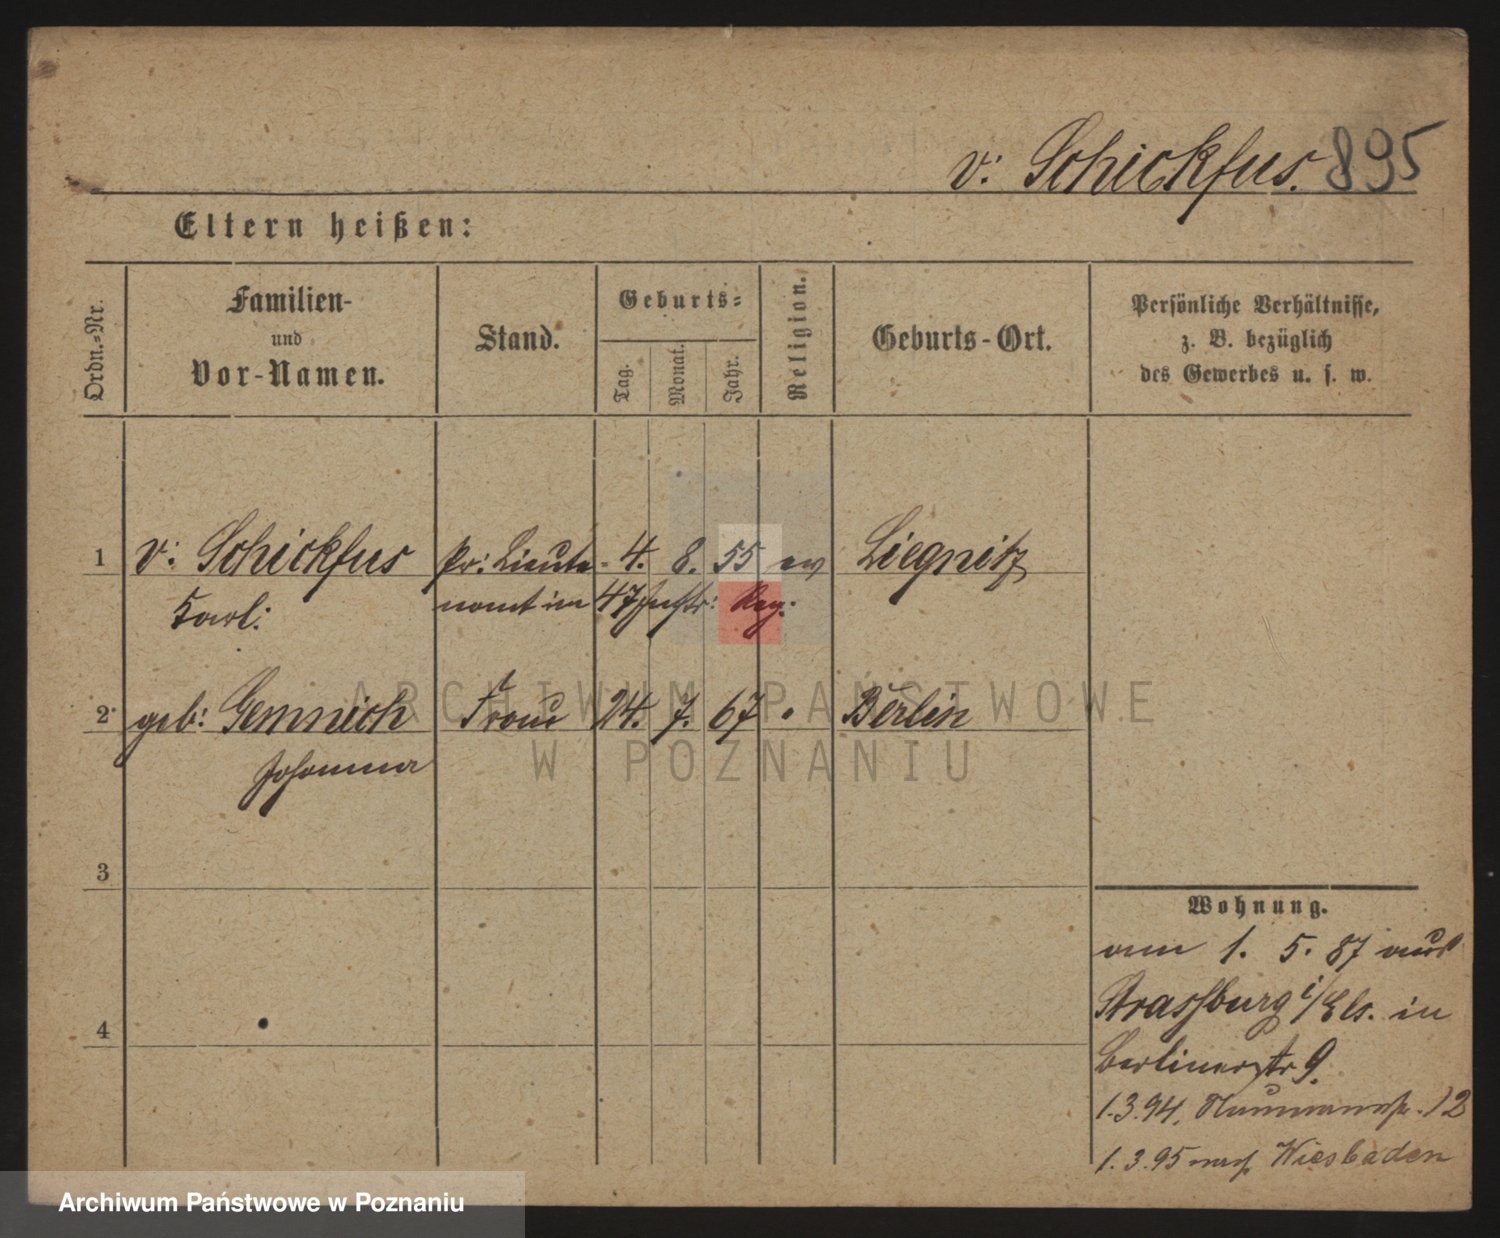 v: Schickfus. 895
Eltern heißen:
Ordn.-Nr.
Familien-
und
Vor-Namen.
Stand.
Geburts-
Tag.
Monat.
Jahr.
Religion.
Geburts-Ort.
Persönliche Verhältnisse,
z. B. bezüglich
des Gewerbes u. s. w.
1 v: Schickfus Pr: Lieute- 4. 8. 55 ev Liegnitz
Karl: nant im 47 Inftr: Reg:
2 geb: Gemmich Frau 24. 7. 67 " Berlin
Johanna
3
4
Wohnung.
am 1. 5. 87 aus
Strassburg i/Els. in
Berlinerstr 9.
1.3.94, Naumannstr. 12
1.3.95 nach Wiesbaden
ARCHIWUM PAŃSTWOWE
W POZNANIU
Archiwum Państwowe w Poznaniu